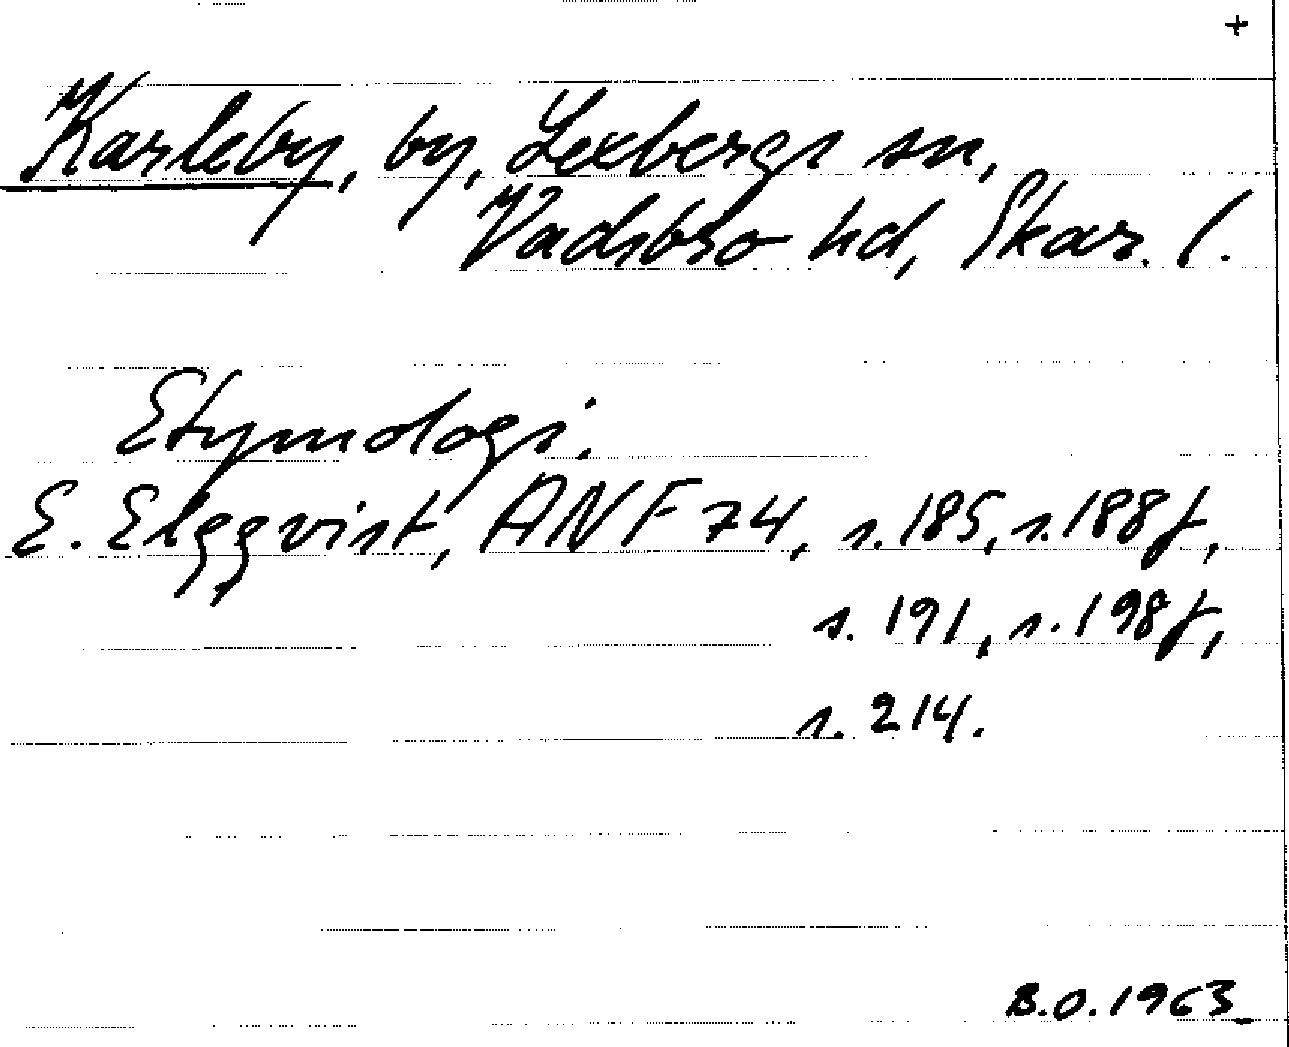 +
Karleby, by, Lexbergs sn,
Vadsbro hd, Skar. l.
Etymologi.
E. Elgqvist, ANF 74, s. 185, s. 188 f,
s. 191, s. 198 f,
s. 214.
B.O. 1963